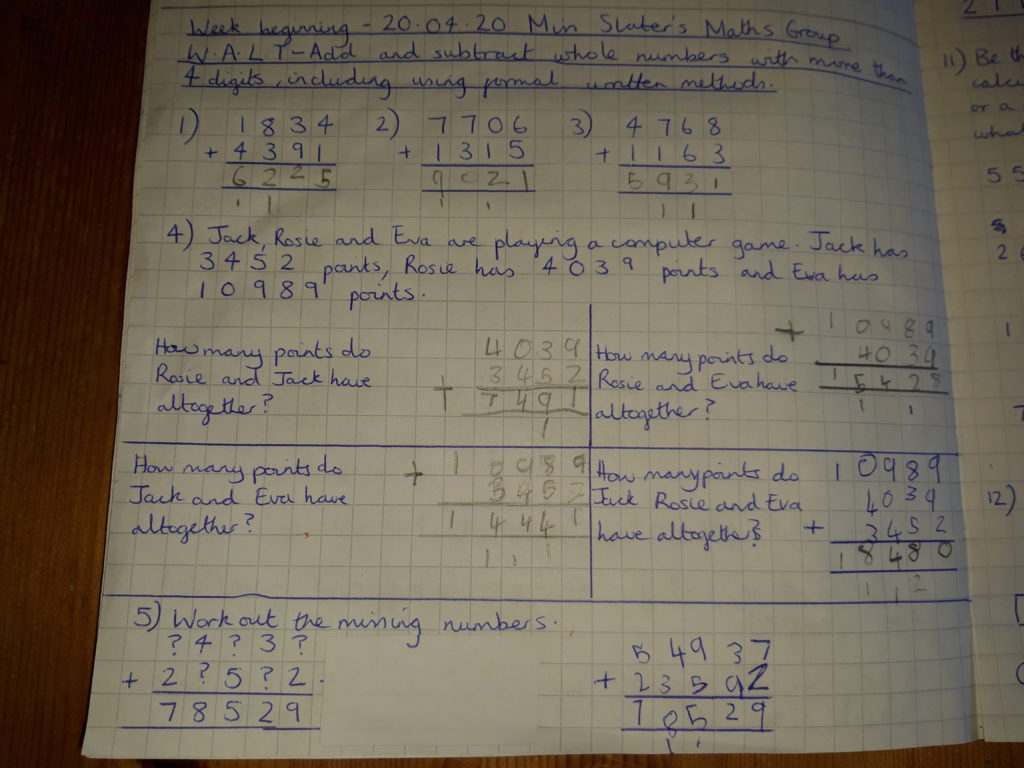 Week beginning - 20.04.20 Miss Slater's Maths Group
W.A.L.T - Add and subtract whole numbers with more than
4 digits, including using formal written methods.
1) 1834
+ 4391
6225
1 1
2) 7706
+ 1315
9021
1 1
3) 4768
+ 1163
5931
1 1
4) Jack, Rosie and Eva are playing a computer game. Jack has
3452 points, Rosie has 4039 points and Eva has
10989 points.
How many points do
Rosie and Jack have
altogether?
4039
+ 3452
7491
1
How many points do
Rosie and Eva have
altogether?
+ 10989
4039
15428
1 1
How many points do
Jack and Eva have
altogether?
+ 10989
3452
14441
1 1 1
How many points do
Jack Rosie and Eva
have altogether?
10989
4039
+ 3452
18480
1 1 2
5) Work out the missing numbers.
? 4 ? 3 ?
+ 2 ? 5 ? 2
7 8 5 2 9
54937
+ 23592
78529
1 1
11) Be th
calcu
or a
what
5 5
2
1
7
12)